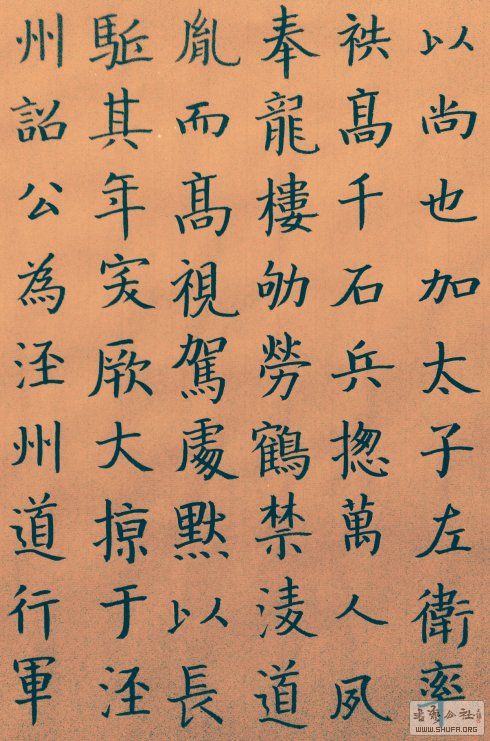 以尚也加太子左衛率
袟髙千石兵揔萬人夙
奉龍樓劬勞鶴禁淩道
胤而髙視駕處默以長
駈其年突厥大掠于涇
州詔公為涇州道行軍
WWW.SHUFA.ORG